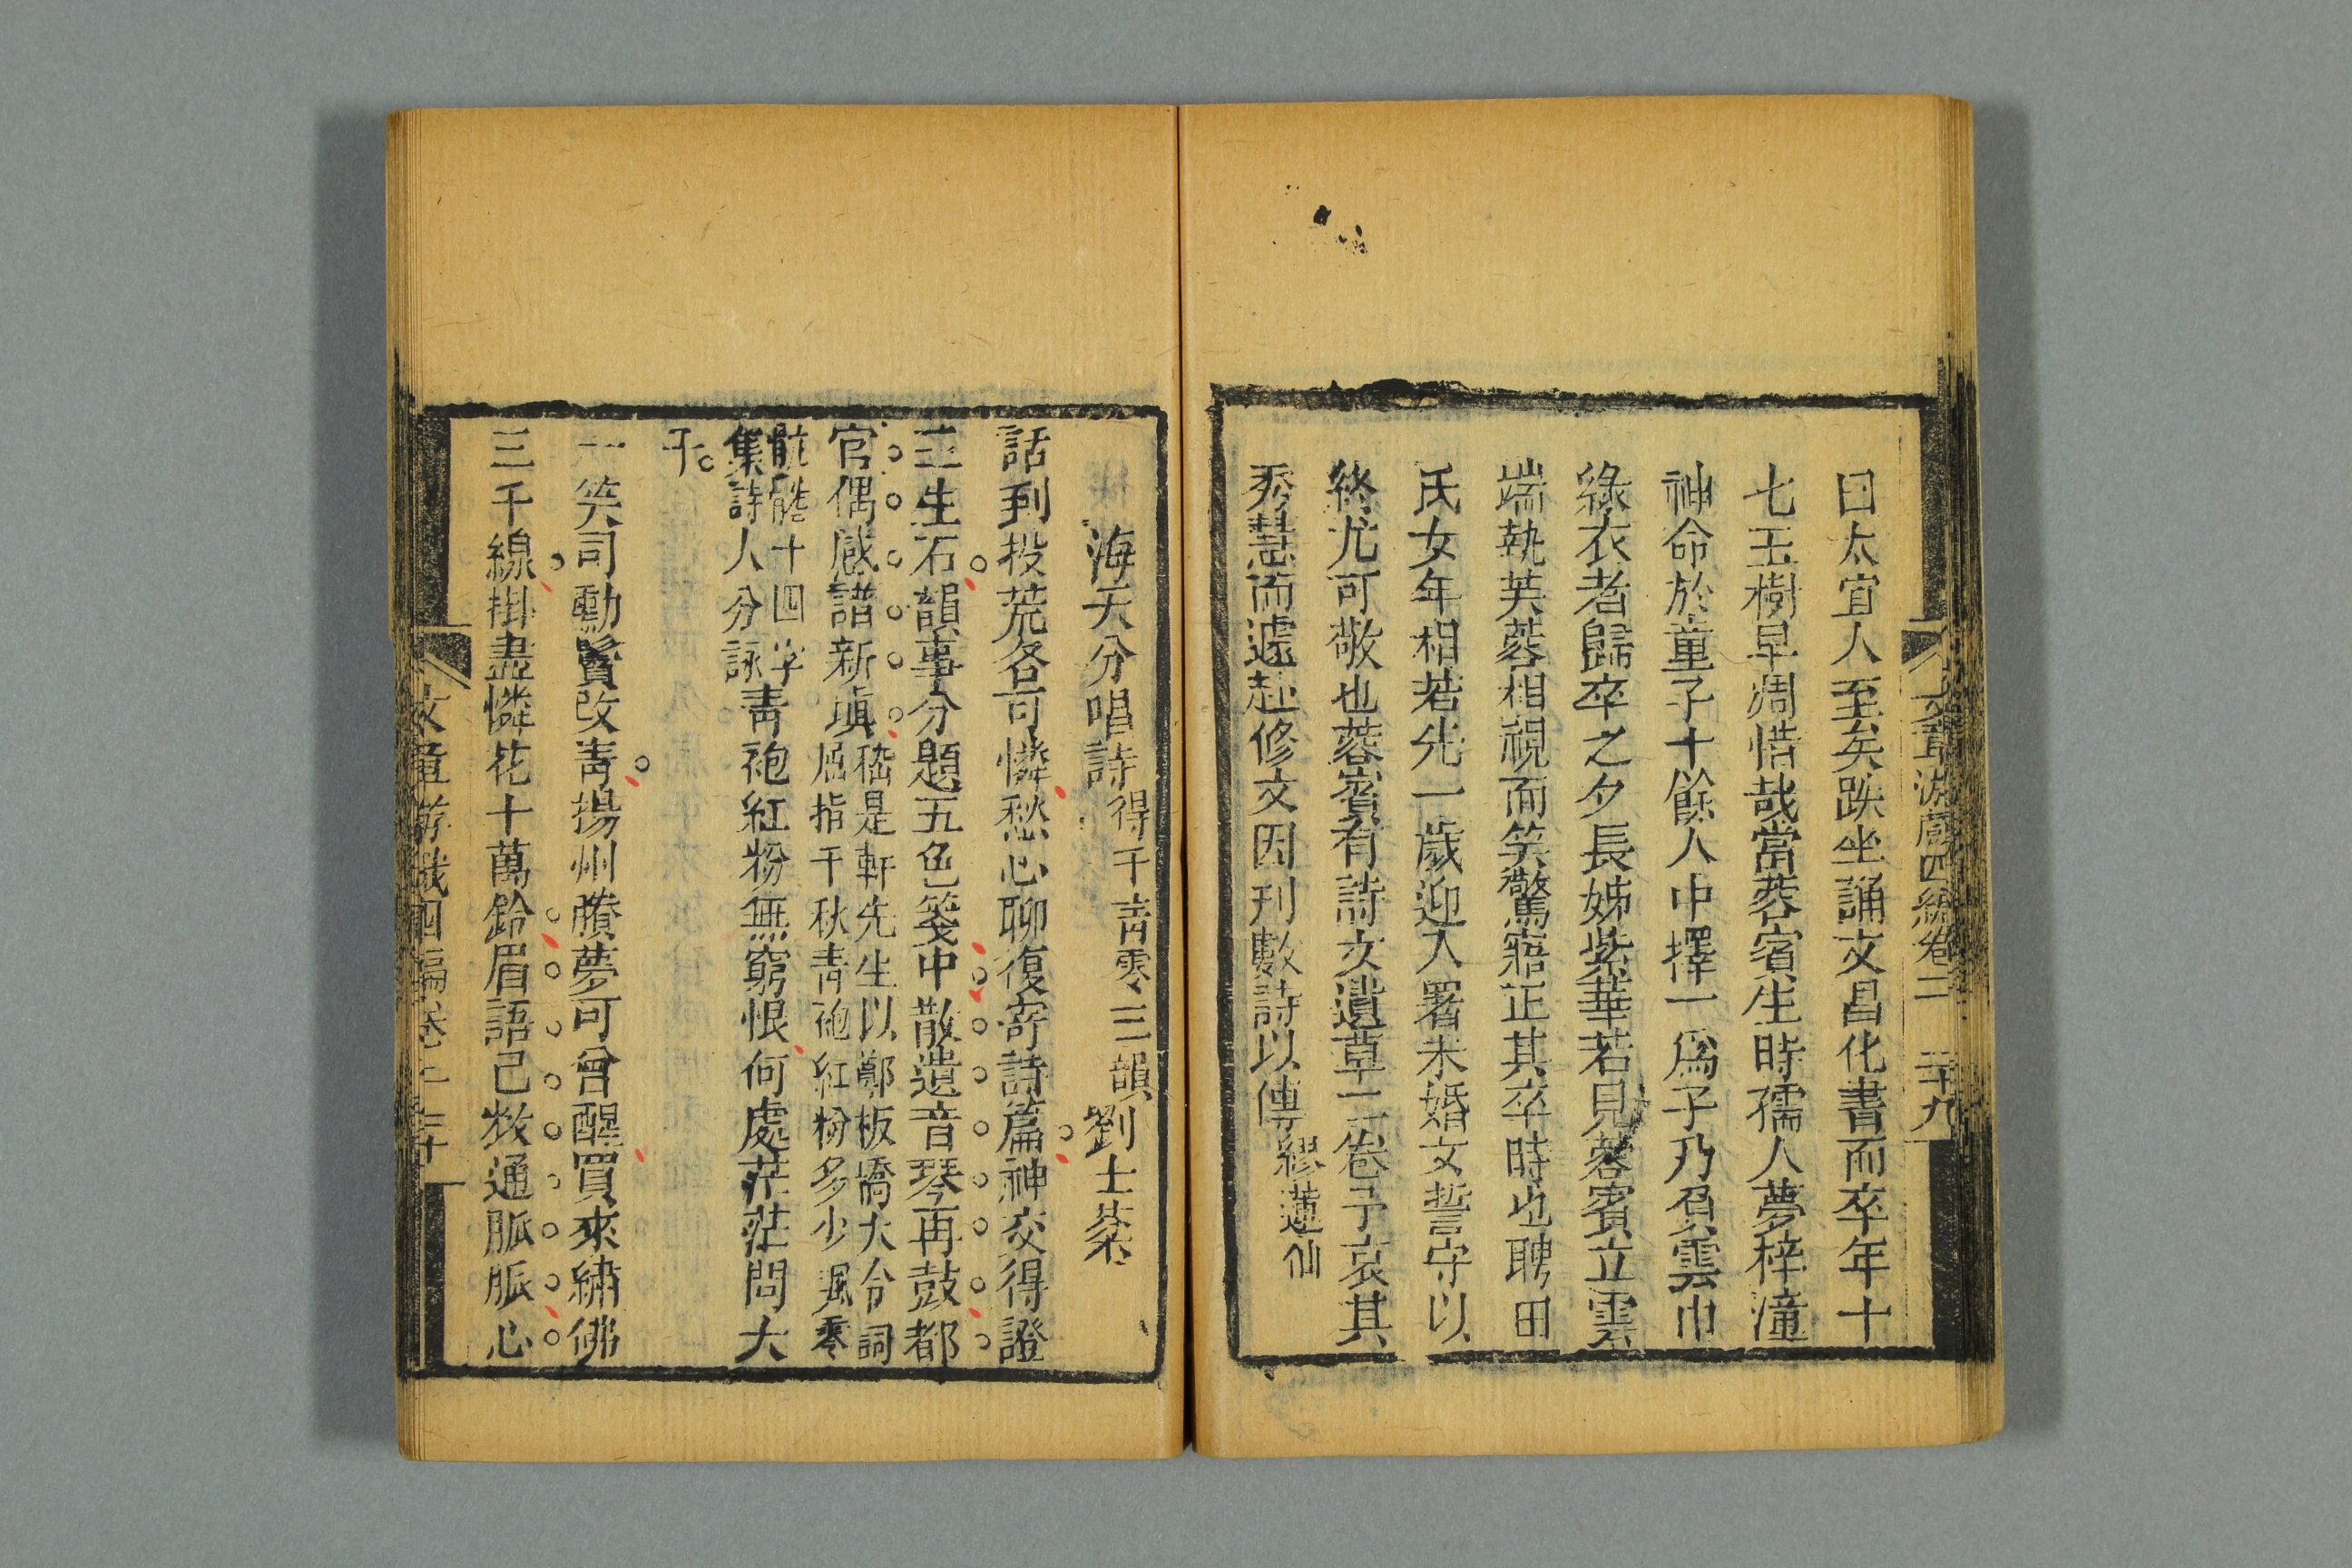 文章游戲四編卷二 二十九
曰太宜人至矣趺坐誦文昌化書而卒年十
七玉樹早凋惜哉當蓉賓生時孺人夢梓潼
神命於童子十餘人中擇一爲子乃召雲巾
綠衣者歸卒之夕長姊紫華若見蓉賓立雲
端執芙蓉相視而笑驚寤正其卒時也聘田
氏女年相若先一歲迎入署未婚女誓守以
終尤可敬也蓉賓有詩文遺草二卷予哀其
秀慧而遽赴修文因刋數詩以傳繆蓮仙
海天分唱詩得千青零三韻劉士棻
話到投荒各可憐愁心聊復寄詩篇神交得證
三生石韻事分題五色箋中散遺音琴再鼓都
官偶感譜新塡嵇是軒先生以鄭板橋大令詞
屈指千秋青袍紅粉多少風零
骯髒十四字
集詩人分詠青袍紅粉無窮恨何處茫茫問大
千
一笑司勳鬢改青揚州賸夢可曾醒買來繡佛
三千線掛盡憐花十萬鈴眉語已教通脈脈心
文章游戲四編卷二 三十